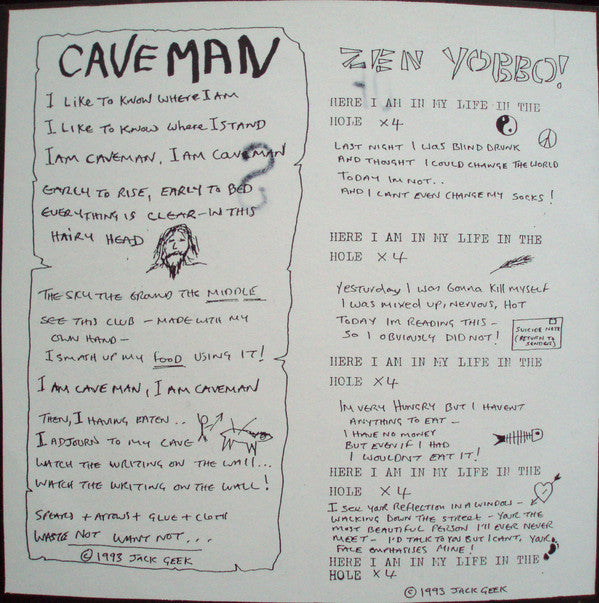 CAVEMAN
I LIKE TO KNOW WHERE I AM
I LIKE TO KNOW WHERE I STAND
I AM CAVEMAN, I AM CAVEMAN
EARLY TO RISE, EARLY TO BED
EVERYTHING IS CLEAR-IN THIS
HAIRY HEAD
?
THE SKY THE GROUND THE MIDDLE
SEE THIS CLUB - MADE WITH MY
OWN HAND -
I SMASH UP MY FOOD USING IT!
I AM CAVE MAN, I AM CAVEMAN
THEN, I HAVING EATEN..
I ADJOURN TO MY CAVE
WATCH THE WRITING ON THE WALL...
WATCH THE WRITING ON THE WALL!
SPEARS + ARROWS + GLUE + CLOTH
WASTE NOT WANT NOT...
© 1993 JACK GEEK
ZEN YOBBO!
HERE I AM IN MY LIFE IN THE
HOLE X4
LAST NIGHT I WAS BLIND DRUNK
AND THOUGHT I COULD CHANGE THE WORLD
TODAY IM NOT..
AND I CANT EVEN CHANGE MY SOCKS!
HERE I AM IN MY LIFE IN THE
HOLE X4
YESTURDAY I WAS GONNA KILL MYSELF
I WAS MIXED UP, NERVOUS, HOT
TODAY IM READING THIS -
SO I OBVIOUSLY DID NOT!
SUICIDE NOTE
(RETURN TO
SENDER)
HERE I AM IN MY LIFE IN THE
HOLE X4
IM VERY HUNGRY BUT I HAVENT
ANYTHING TO EAT -
I HAVE NO MONEY
BUT EVEN IF I HAD
I WOULDN'T EAT IT!
HERE I AM IN MY LIFE IN THE
HOLE X4
I SEE YOUR REFLECTION IN A WINDOW -
WALKING DOWN THE STREET - YOUR THE
MOST BEAUTIFUL PERSON I'LL EVER NEVER
MEET - I'D TALK TO YOU BUT I CANT, YOUR
FACE EMPHASISES MINE!
HERE I AM IN MY LIFE IN THE
HOLE X4
© 1993 JACK GEEK